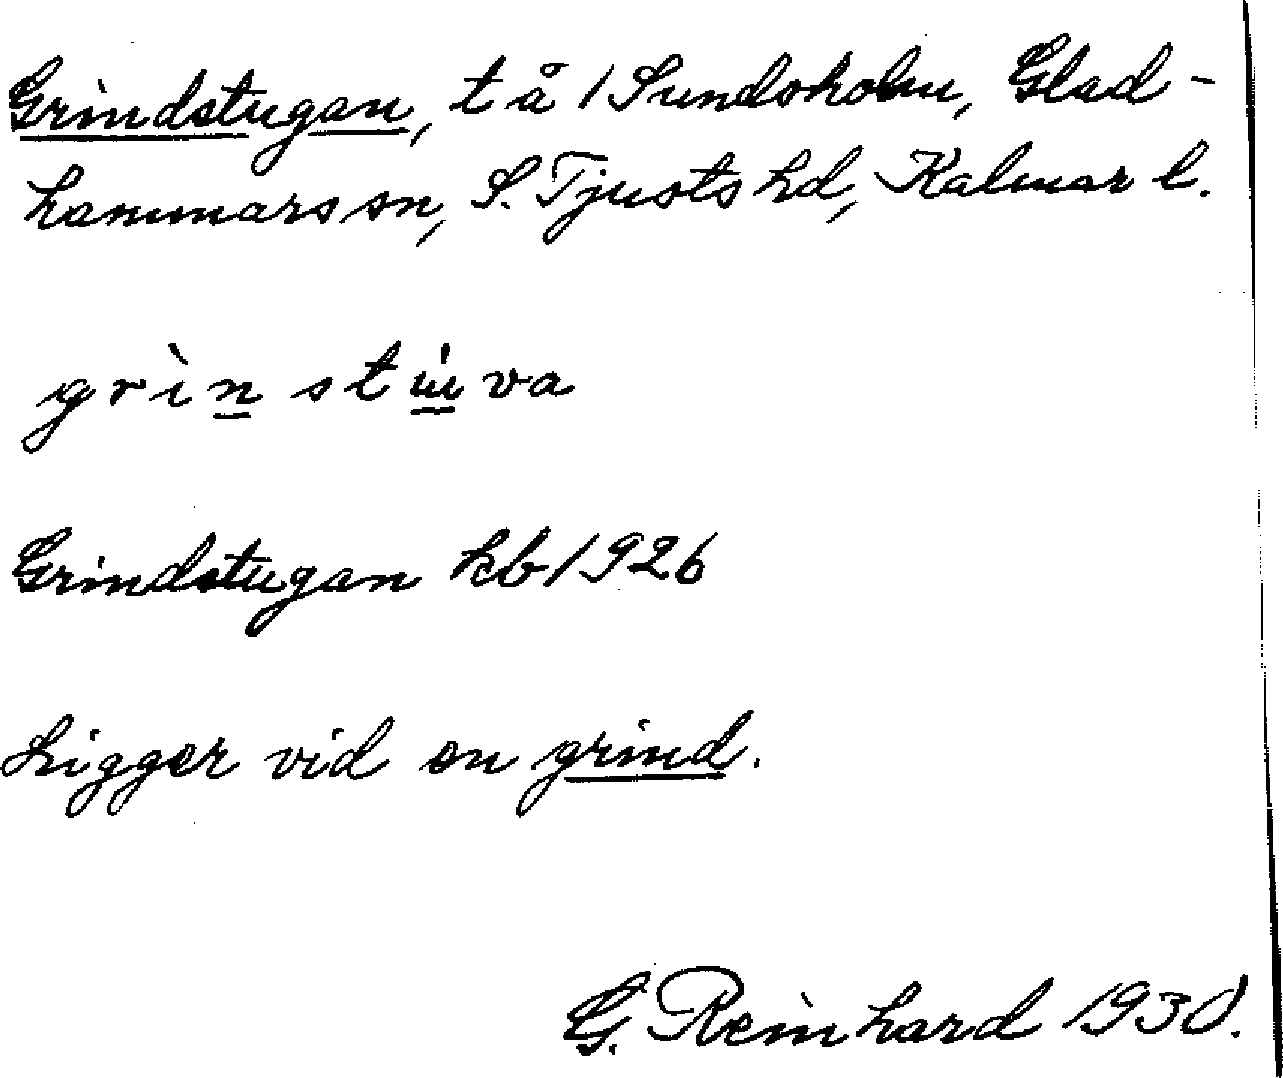 Grindstugan, t å 1 Sundsholm, Glad-
hammars sn, S. Tjusts hd, Kalmar l.
grìn stúva
Grindstugan kb 1926
Ligger vid en grind.
G. Reinhard 1930.